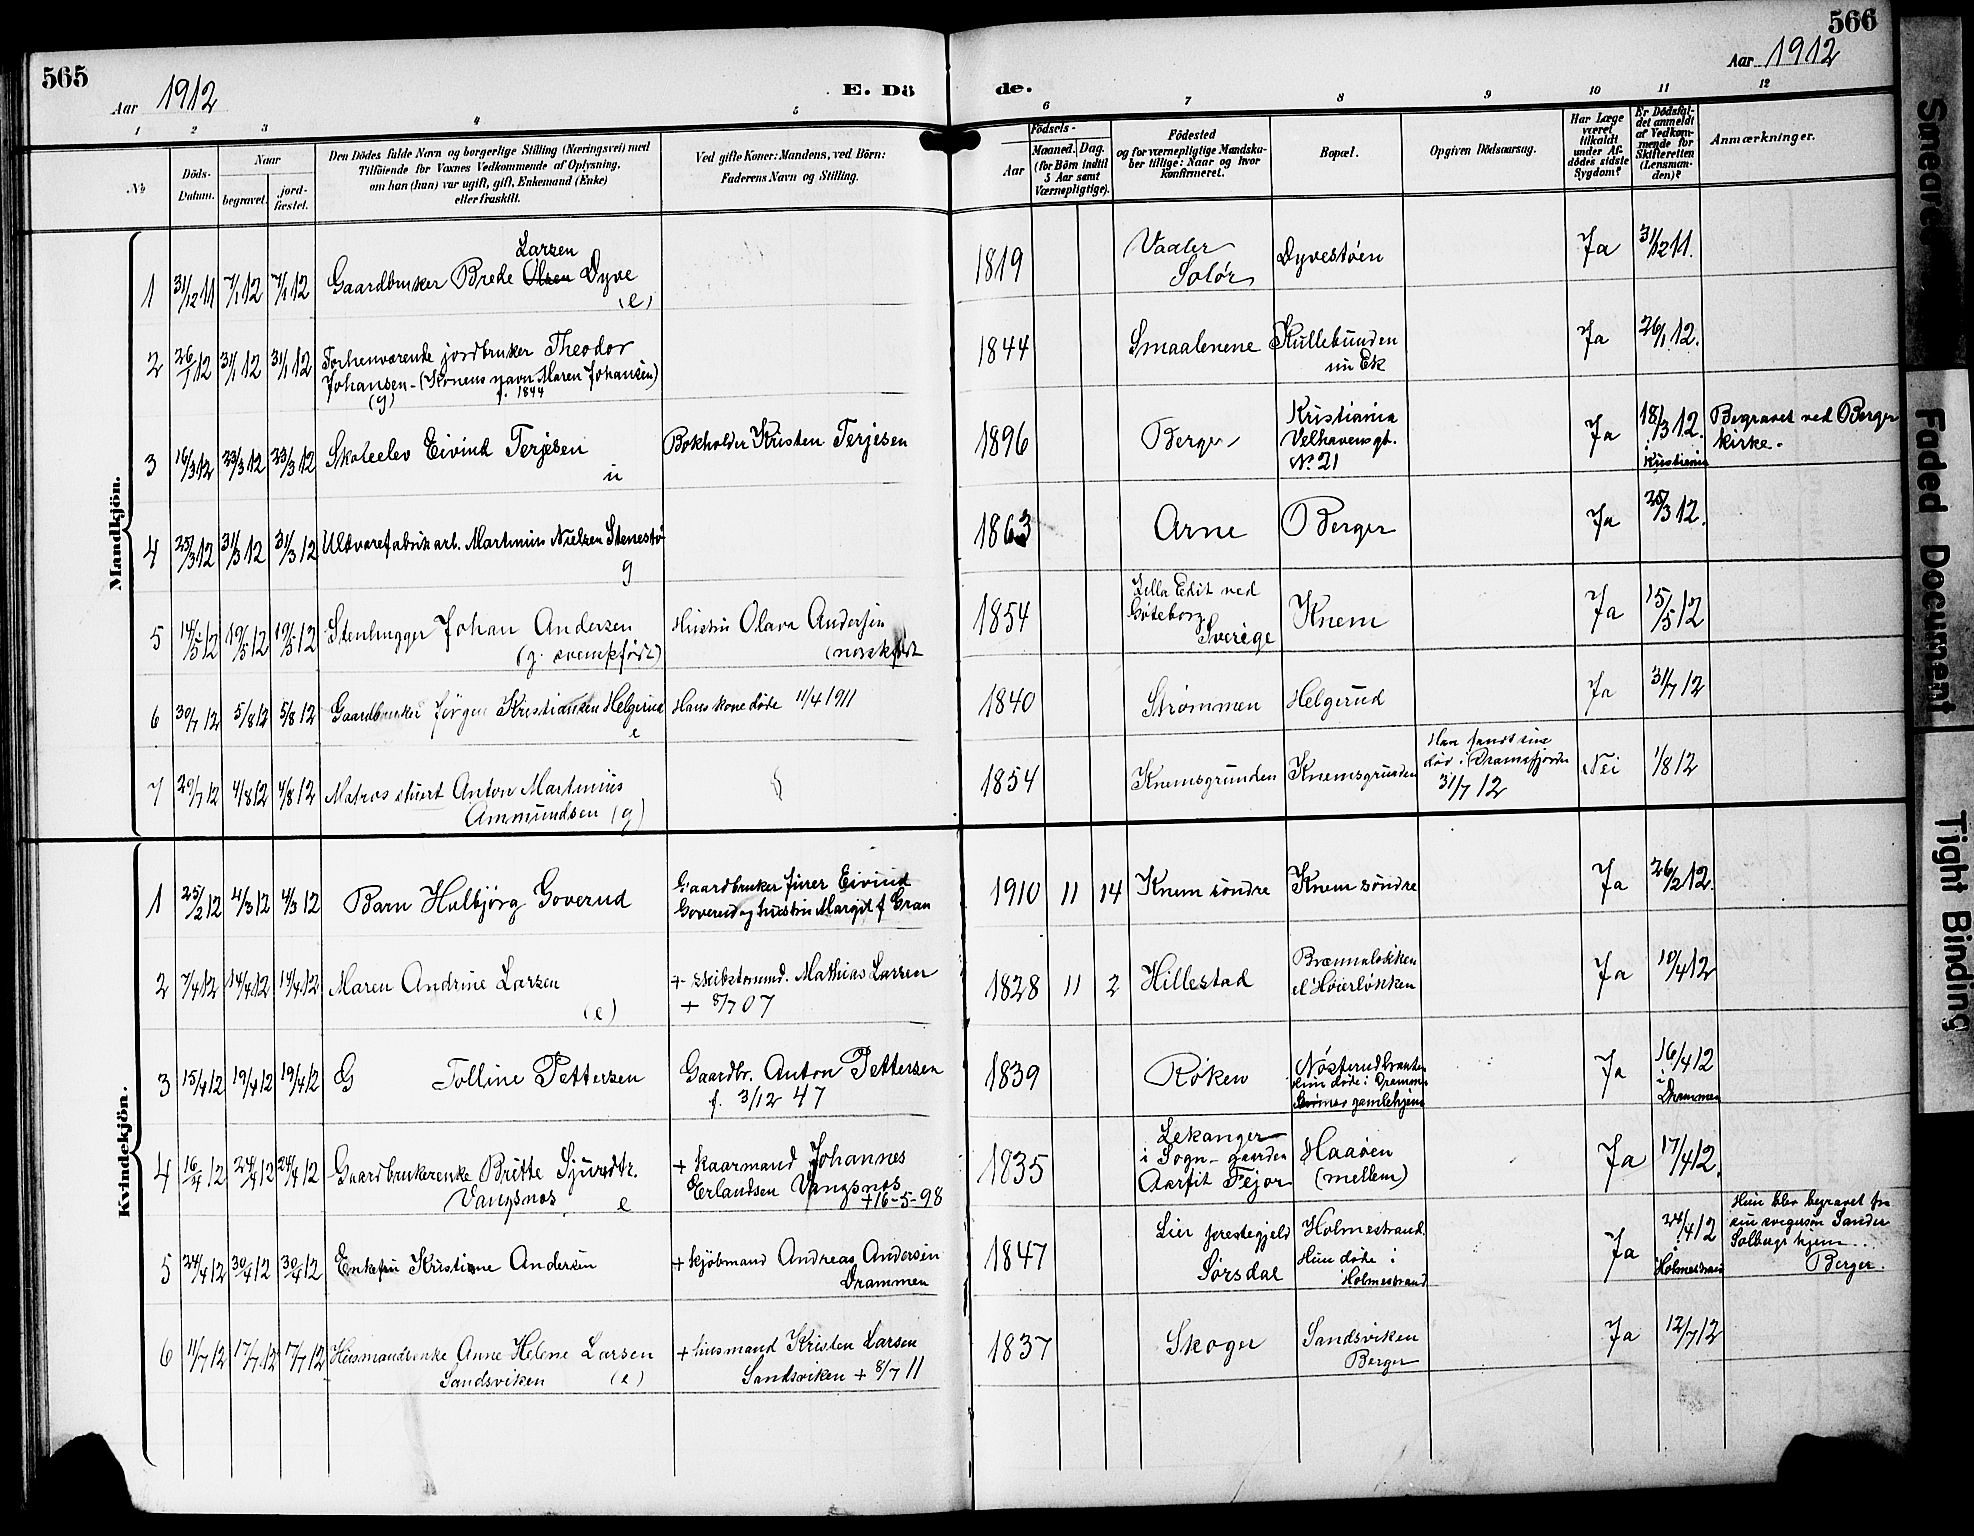 565
Aar 1912
E. Dö
de.
566
Aar 1912
1 2 3 4 5 6 7 8 9 10 11 12
№
Döds-
Datum.
Naar
begravet.
jord-
fæstet.
Den Dödes fulde Navn og borgerlige Stilling (Næringsvei) med
Tilföiende for Voxnes Vedkommende af Oplysning,
om han (hun) var ugift, gift, Enkemand (Enke)
eller fraskilt.
Ved gifte Koner: Mandens, ved Börn:
Faderens Navn og Stilling.
Födsels-
Aar
Maaned. Dag.
(for Börn indtil
5 Aar samt
Værnepligtige).
Födested
og for værnepligtige Mandsku-
ber tillige: Naar og hvor
konfirmeret.
Bopæl.
Opgiven Dödsaarsag.
Har Læge
været
tilkaldt
under Af-
dödes sidste
Sygdom?
Er Dödsfal-
det anmeldt
af Vedkom-
mende for
Skifteretten
(Lensman-
den)?
Anmærkninger.
Mandkjön.
1 31/12 11 7/1 12 7/1 12 Gaardbruker Brede Olsen Dyve
Larsen
(e)
1819 Vaaler
Solør
Dyvestøen Ja 31/12 11.
2 26/1 12 31/1 12 31/1 12 Forhenværende jordbruker Theodor
Johansen - (Konens navn Maren Johansen)
(g) f. 1844
1844 Smaalenene Kullebunden
Ek
Ja 26/1 12.
3 16/3 12 23/3 12 23/3 12 Skoleelev Eivind Terjesen
u
Bokholder Kristen Terjesen
1896 Berger
Kristiania
Velhavensgt.
No 21
Ja 18/3 12.
i
Kristiania
Begravet ved Berger
kirke.
4 25/3 12 31/3 12 31/3 12 Uldvarefabrikarb. Martinius Nielsen Stenestø
g
1863 Arne Berger Ja 25/3 12.
5 14/5 12 19/5 12 19/5 12 Stenhugger Johan Andersen
(g. svenskfødt)
Hustru Olava Andersen
(norskfødt
1854 Zella Edit ved
Gøteborg
Sverige
Knem Ja 15/5 12
6 30/7 12 5/8 12 5/8 12 Gaardbruker Jørgen Kristiansen Helgerud
e
Hans kone døde 11/4 1911
1840 Strømmen Helgerud Ja 31/7 12
7 29/7 12 4/8 12 4/8 12 Matros stuert Anton Martinius
Ammundsen (g)
1854 Knemsgrunden Knemsgrunden
Han fandtsine
død i Dramsfjorden
31/7 12
Nei 1/8 12
Kvindekjön.
1 25/2 12 4/3 12 4/3 12 Barn Halbjörg Goverud
Gaardbruker Einer Eivind
Goverud og hustru Margit f Gran
1910 11 14 Knem søndre Knem søndre Ja 26/2 12.
2 7/4 12 14/4 12 14/4 12 Maren Andrine Larsen
(e)
+ skibstømmd. Mathias Larsen
+ 8/7 07
1828 11 2 Hillestad
Brænnaløkken
el Høierløkken
Ja 10/4 12
3 15/4 12 19/4 12 19/4 12 G Tolline Pettersen
Gaardbr. Anton Pettersen
f. 3/12 47
1839 Røken
Nøsterudbraaten
Hun døde i
gamlehjem
Ja 16/4 12
i
Drammen
4 16/4 12 24/4 12 24/4 12 Gaardbrukerenke Britte Sjurdtr.
Vangsnes e
+ kaarmand Johannes
Erlandsen Vangsnes
+ 16-5-98
1835 Lekanger
i Sogn - gaarden
Fejor
Haaøen
(mellem)
Ja 17/4 12.
5 24/4 12 30/4 12 30/4 12 Enkefru Kristiane Andersen
+ kjøbmand Andreas Andersen
Drammen
1847 Lier prestegjeld
Sørsdal
Holmestrand.
Hun døde i
Holmestrand
Ja 24/4 12
i
Holmestrand
Hun blev begravet fra
sin svigersøn Sander
Solbergs hjem ...
Berger.
6 11/7 12 17/7 12 17/7 12 Husmandsenke Anne Helene Larsen
Sandsviken (e)
+ husmand Kristen Larsen
Sandsviken + 8/7 11
1837 Skoger Sandsviken
Berger
Ja 12/7 12
Faded Document
Tight Binding